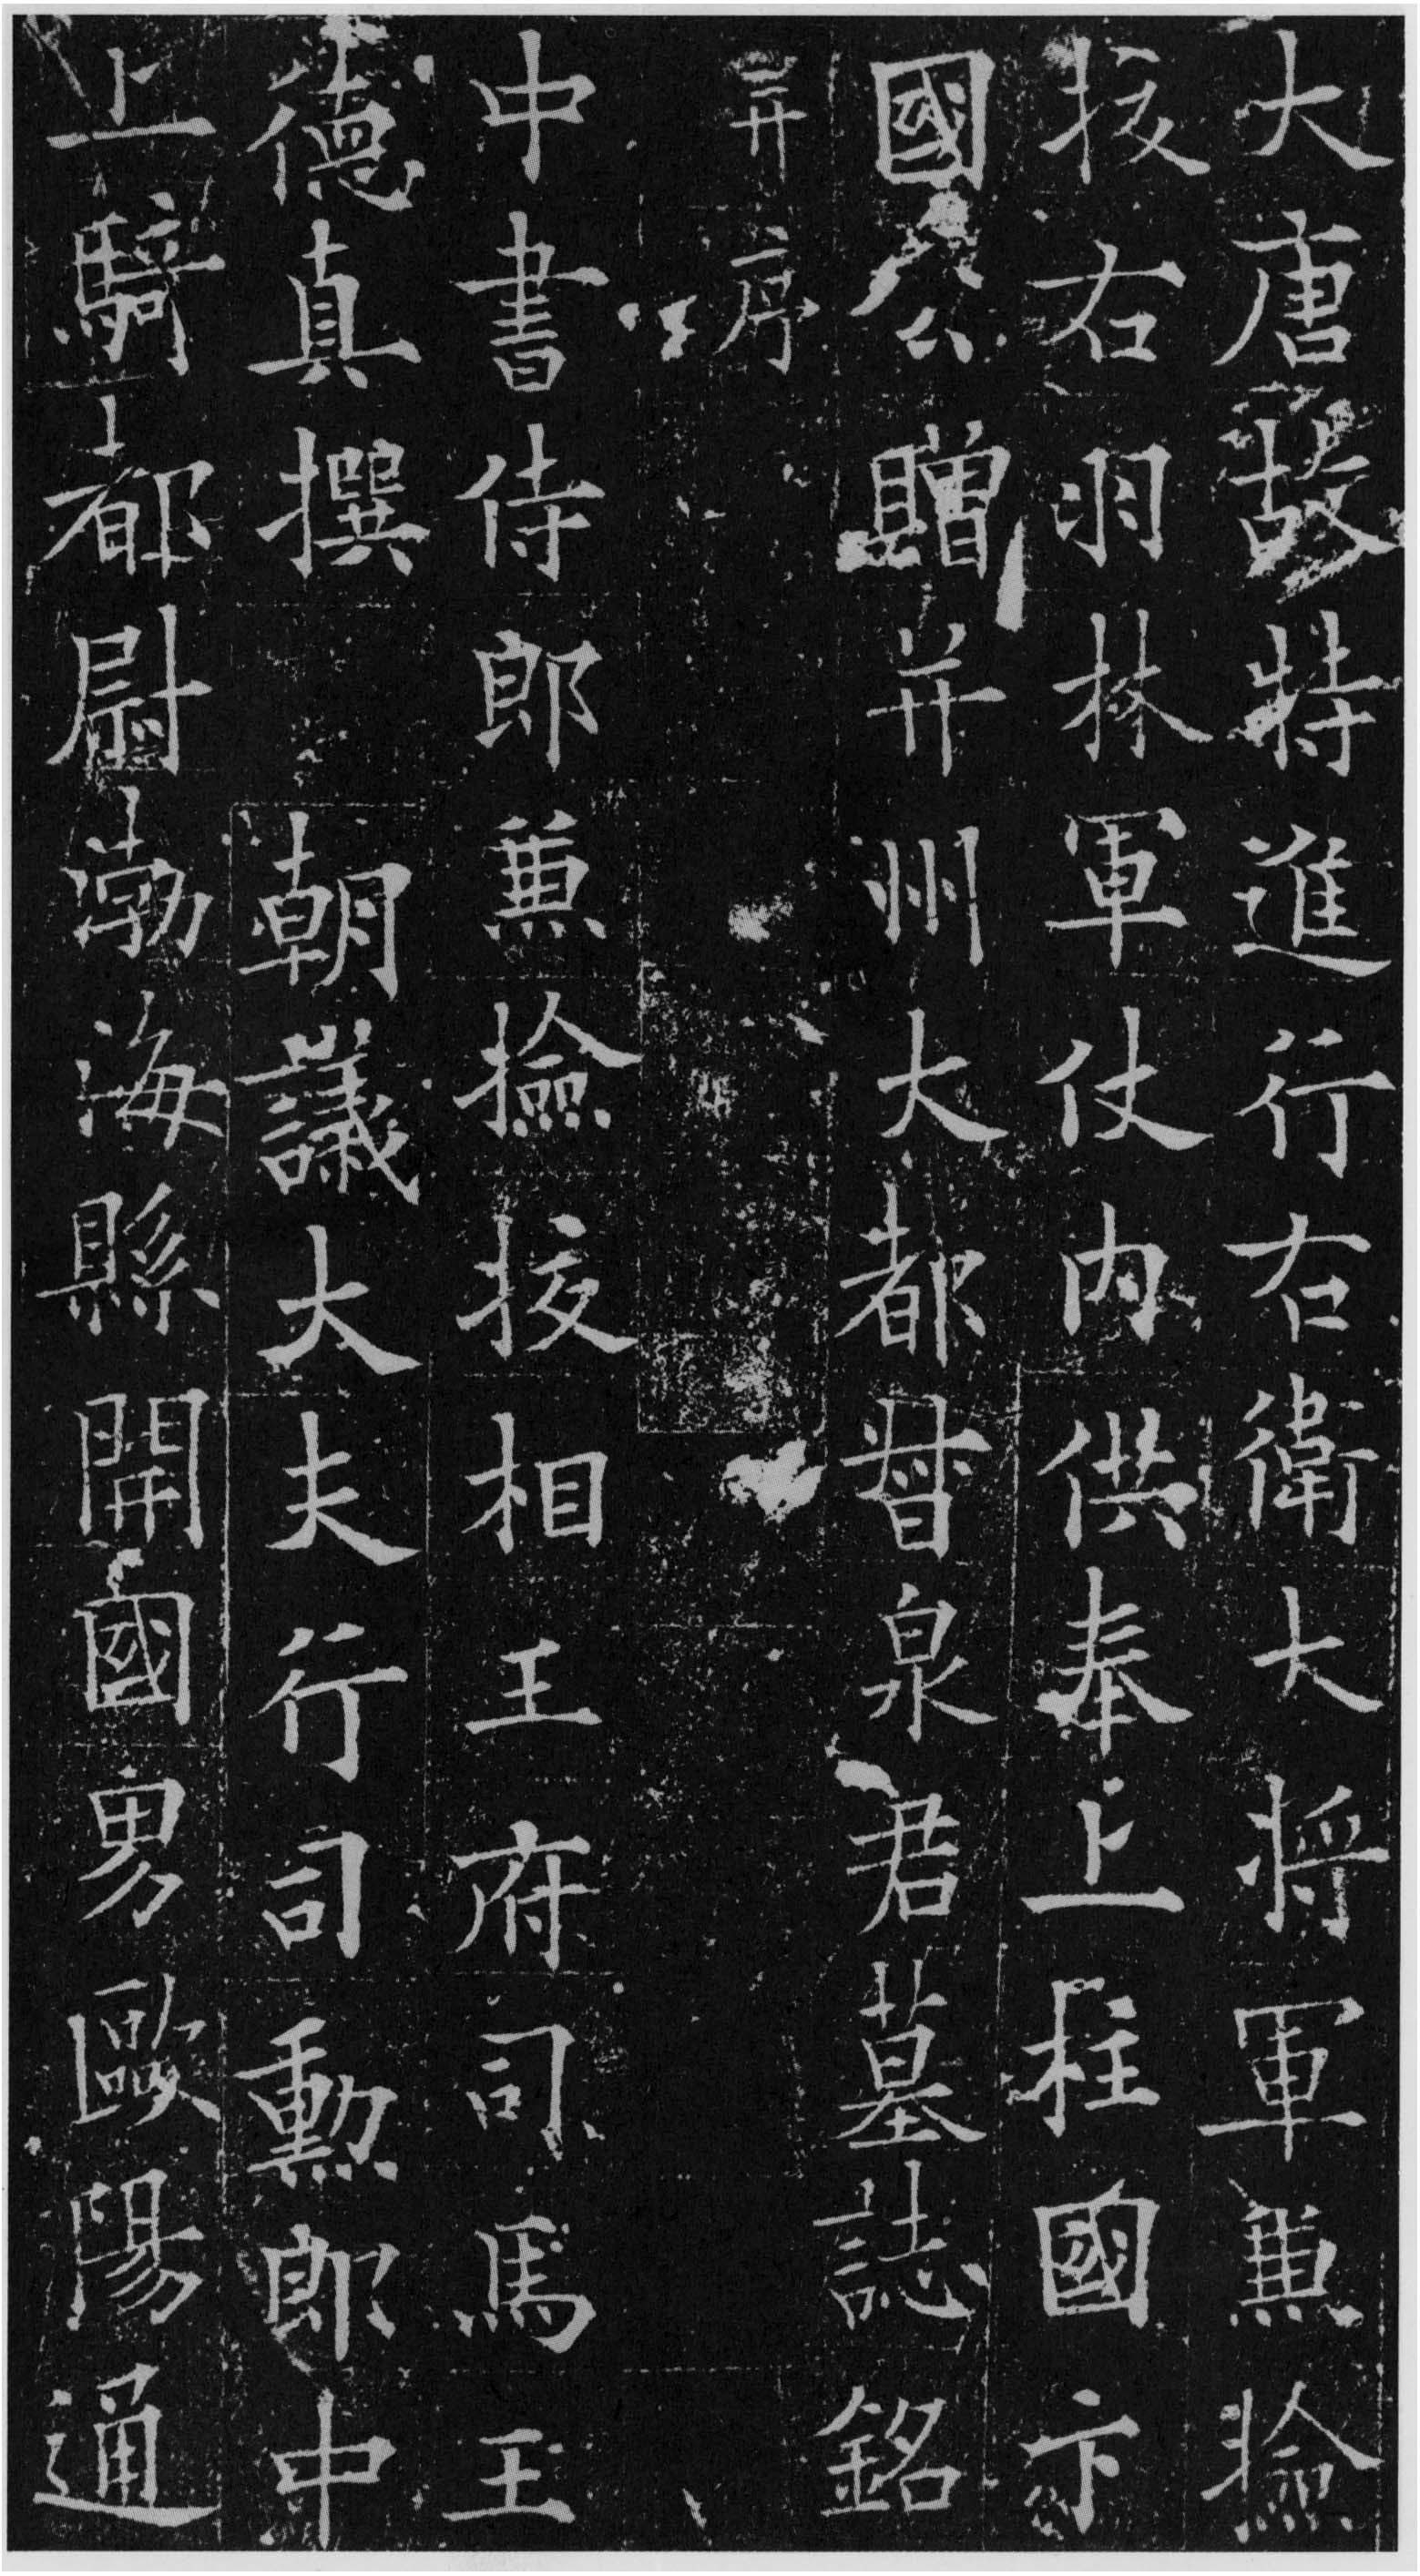 大唐故特進行右衛大將軍兼撿
挍右羽林軍仗內供奉上柱國卞
國公贈并州大都督泉君墓誌銘
并序
中書侍郎兼撿挍相王府司馬王
德真撰 朝議大夫行司勳郎中
上騎都尉渤海縣開國男歐陽通